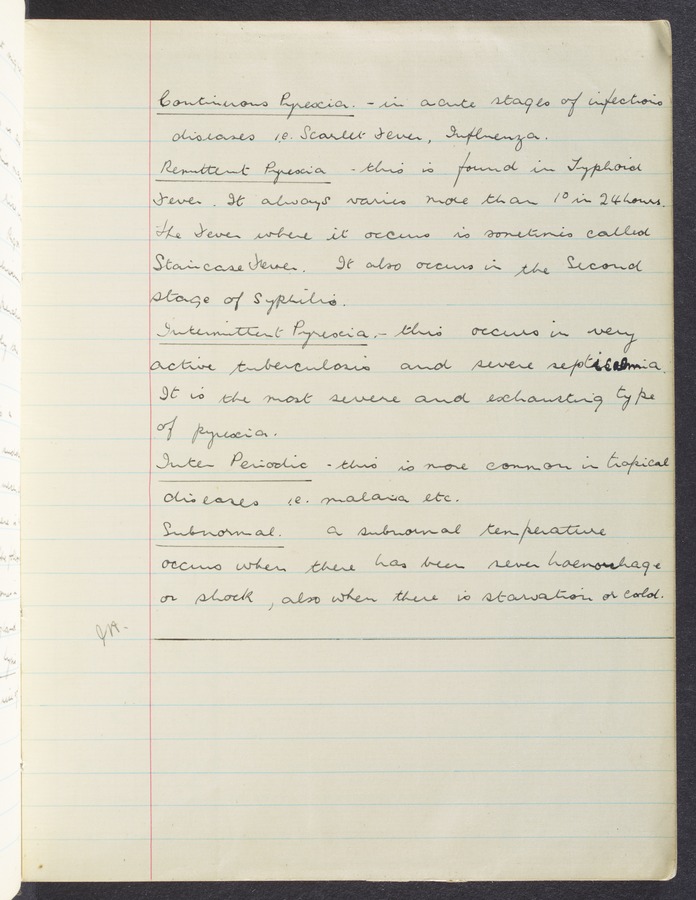 Continuous Pyrexia. - in acute stages of infectious
diseases i.e. Scarlet Fever, Influenza.
Remittent Pyrexia - this is found in Typhoid
Fever. It always varies more than 1° in 24 hours.
The Fever where it occurs is sometimes called
Staircase Fever. It also occurs in the Second
stage of Syphilis.
Intermittent Pyrexia. - this occurs in very
active tuberculosis and severe septicaemia.
It is the most severe and exhausting type
of pyrexia.
Inter Periodic - this is more common in tropical
diseases i.e. malaria etc.
Subnormal. A subnormal temperature
occurs when there has been sever haemorrhage
or shock, also when there is starvation or cold.